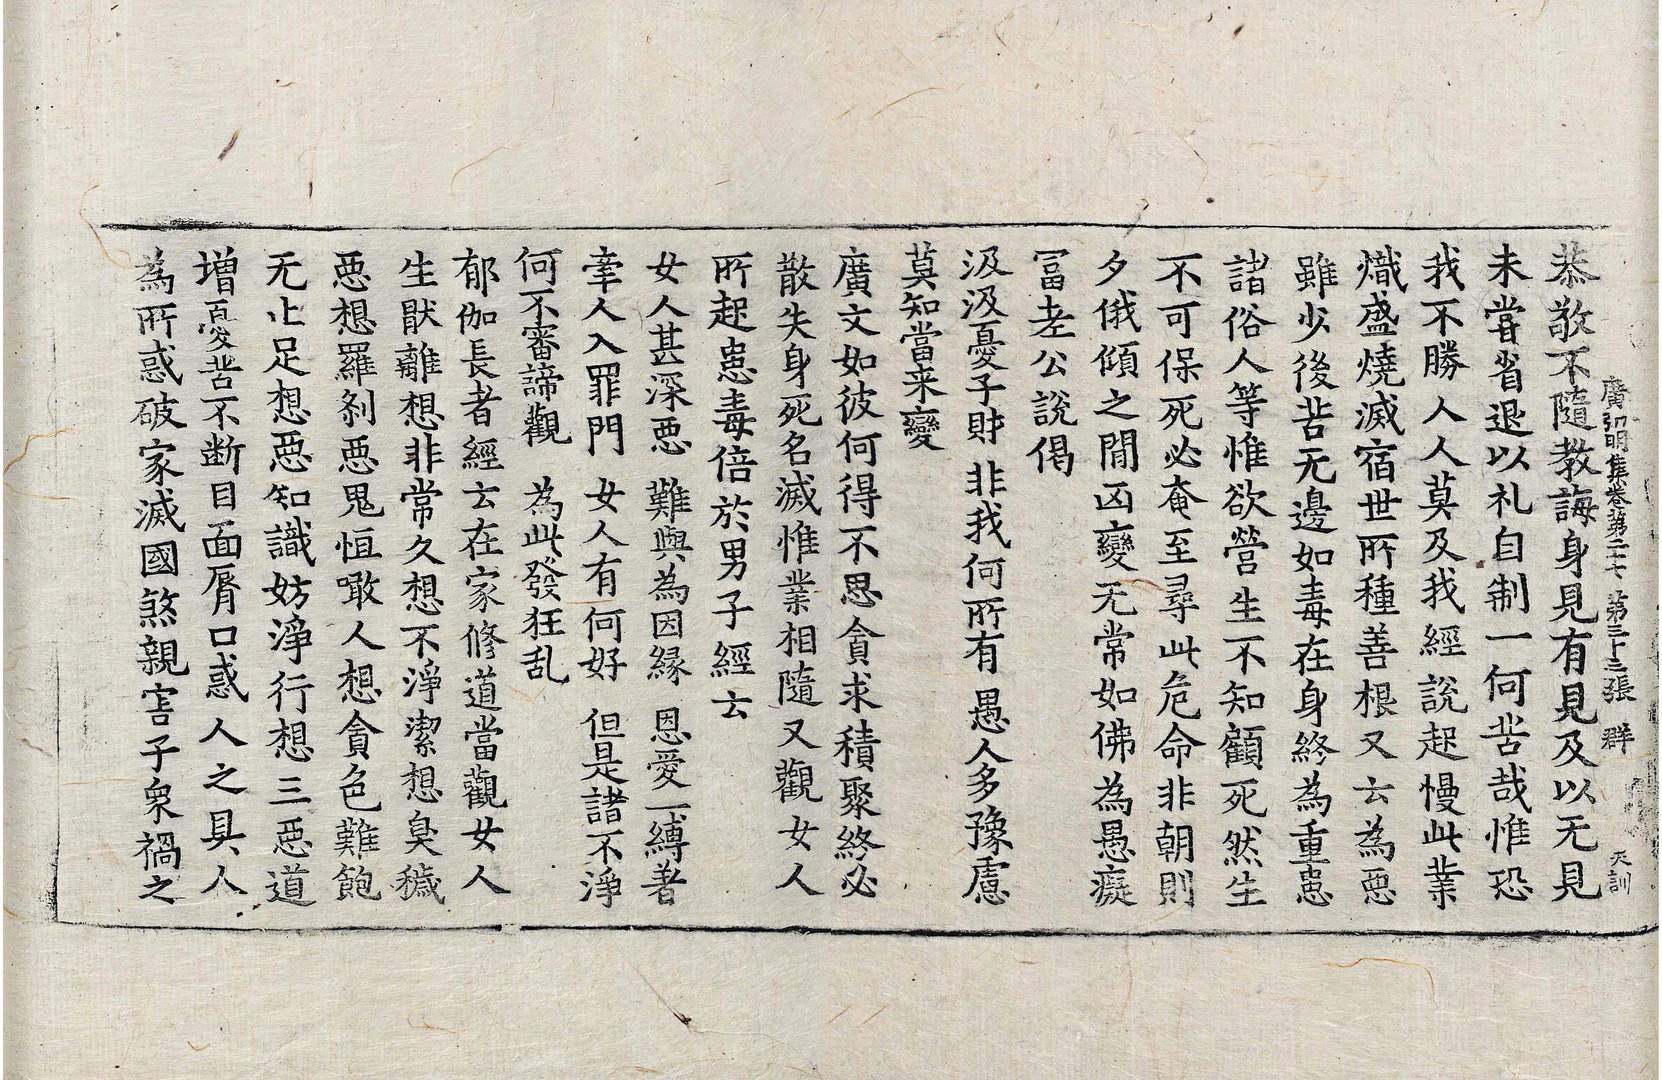 廣弘明集卷第二十七 第三十三張 群 天訓
恭敬不隨教誨身見有見及以无見
未甞省退以礼自制一何苦哉惟恐
我不勝人人莫及我經說起慢此業
熾盛燒滅宿世所種善根又云為惡
雖少後苦无邊如毒在身終為重患
諸俗人等惟欲營生不知顧死然生
不可保死必奄至尋此危命非朝則
夕俄傾之間凶變无常如佛為愚癡
冨老公說偈
汲汲憂子財 非我何所有 愚人多豫慮
莫知當来變
廣文如彼何得不思貪求積聚終必
散失身死名滅惟業相隨又觀女人
所起患毒倍於男子經云
女人甚深惡 難與為因緣 恩愛一縛著
牽人入罪門 女人有何好 但是諸不淨
何不審諦觀 為此發狂乱
郁伽長者經云在家修道當觀女人
生猒離想非常久想不淨潔想臭穢
惡想羅剎惡鬼恒噉人想貪色難飽
无止足想惡知識妨淨行想三惡道
增憂苦不断目面脣口惑人之具人
為所惑破家滅國煞親害子衆禍之